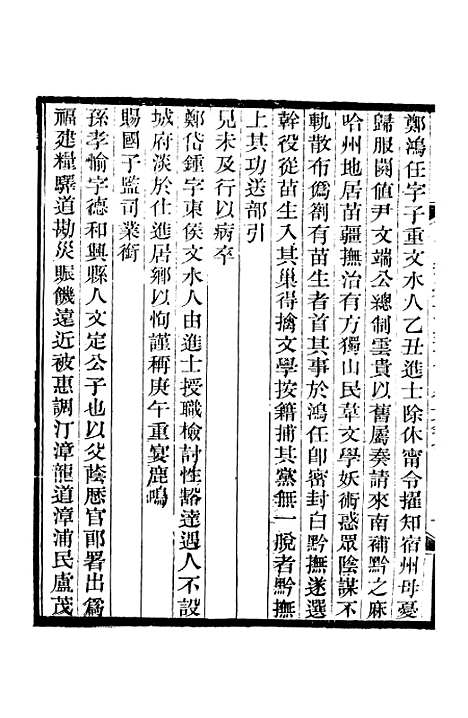 鄭鴻任字子重文水人乙丑進士除休甯令擢知宿州母憂
歸服闋值尹文端公總制雲貴以舊屬奏請來南補黔之麻
哈州地居苗疆撫治有方獨山民韋文學妖術惑眾陰謀不
軌散布僞劄有苗生者首其事於鴻任卽密封白黔撫遂選
幹役從苗生入其巢得擒文學按籍捕其黨無一脫者黔撫
上其功送部引
見未及行以病卒
鄭岱鍾字東侯文水人由進士授職檢討性豁達遇人不設
城府淡於仕進居鄉以恂謹稱庚午重宴鹿鳴
賜國子監司業銜
孫孝愉字德和興縣人文定公子也以父蔭歷官郞署出爲
福建糧驛道勘災賑饑遠近被惠調汀漳龍道漳浦民盧茂